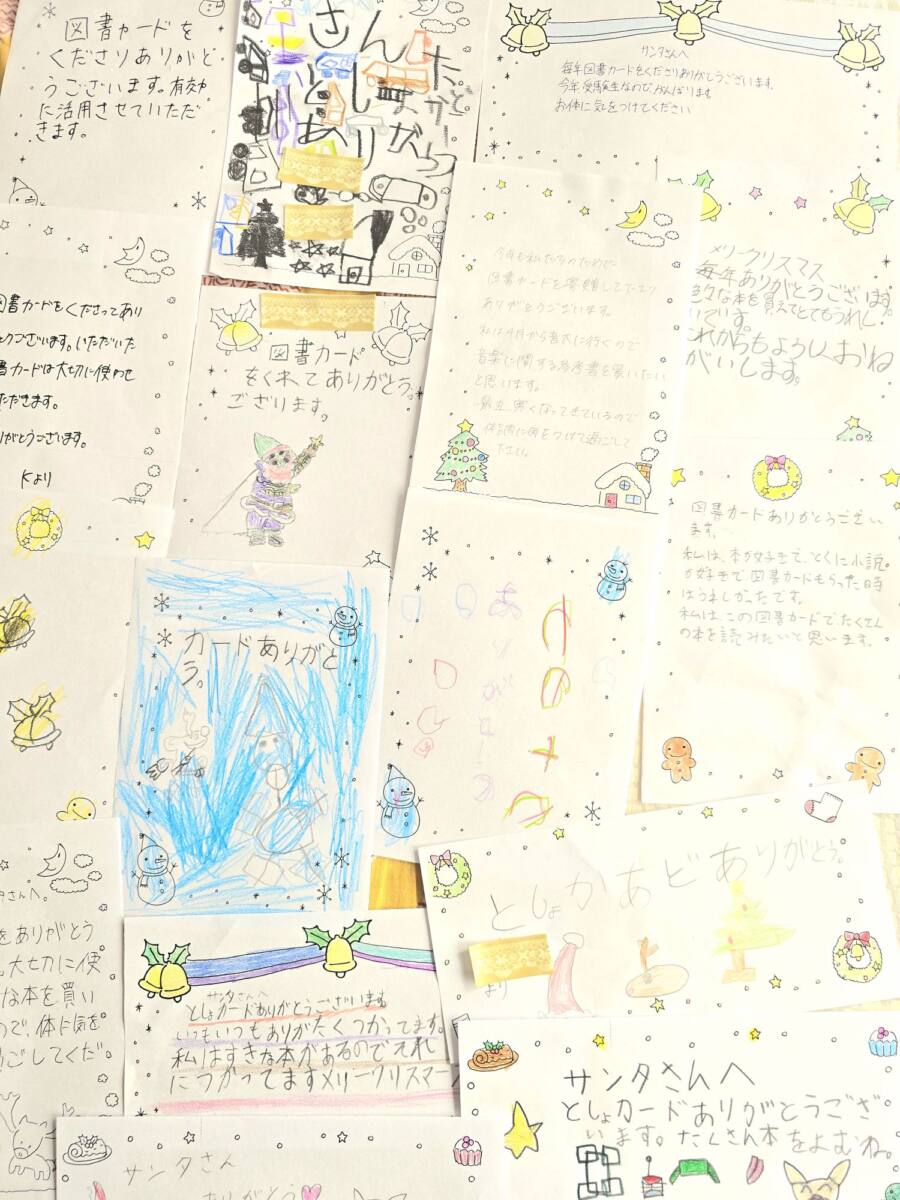 図書カードを
くださりありがと
うございます。有効
に活用させていただ
きます。
さん
とし
あり
サンタさんへ
毎年図書カードをくださりありがとうございます。
今年受験生なのでがんばります
お体に気をつけてください
図書カードをくださってあり
とうございます。いただいた
書カードは大切に使わせ
ただきます。
りがとうございます。
Kより
図書カード
をくれてありがとう。
ございます。
図書カードを寄贈して下さり
ありがとうございます。
私は4月から音大に行くので
音楽に関する参考書を買いたい
と思います。
体調に気をつけて過ごして
下さい。
メリークリスマス
毎年ありがとうございます。
色々な本を買えてとてもうれし
いです。
これからもよろしくおね
がいします。
図書カードありがとうござい
ます。
私は、本が好きで、とくに小説
が好きで図書カードもらった時
はうれしかったです。
私は、この図書カードでたくさん
の本を読みたいと思います。
カードありがと
う。
ありがとう
としょかあどありがとう。
より
タさんへ。
をありがとう
。大切に使
な本を買い
ので、体に気を
ごしてくだ。
サンタさんへ
としょカードありがとうございます
いつもいつもありがたくつかってます。
私はすきな本があるのでそれ
につかってますメリークリスマー
サンタさんへ
としょカードありがとうござ
います。たくさん本をよむね。
サンタさん
ありがとう